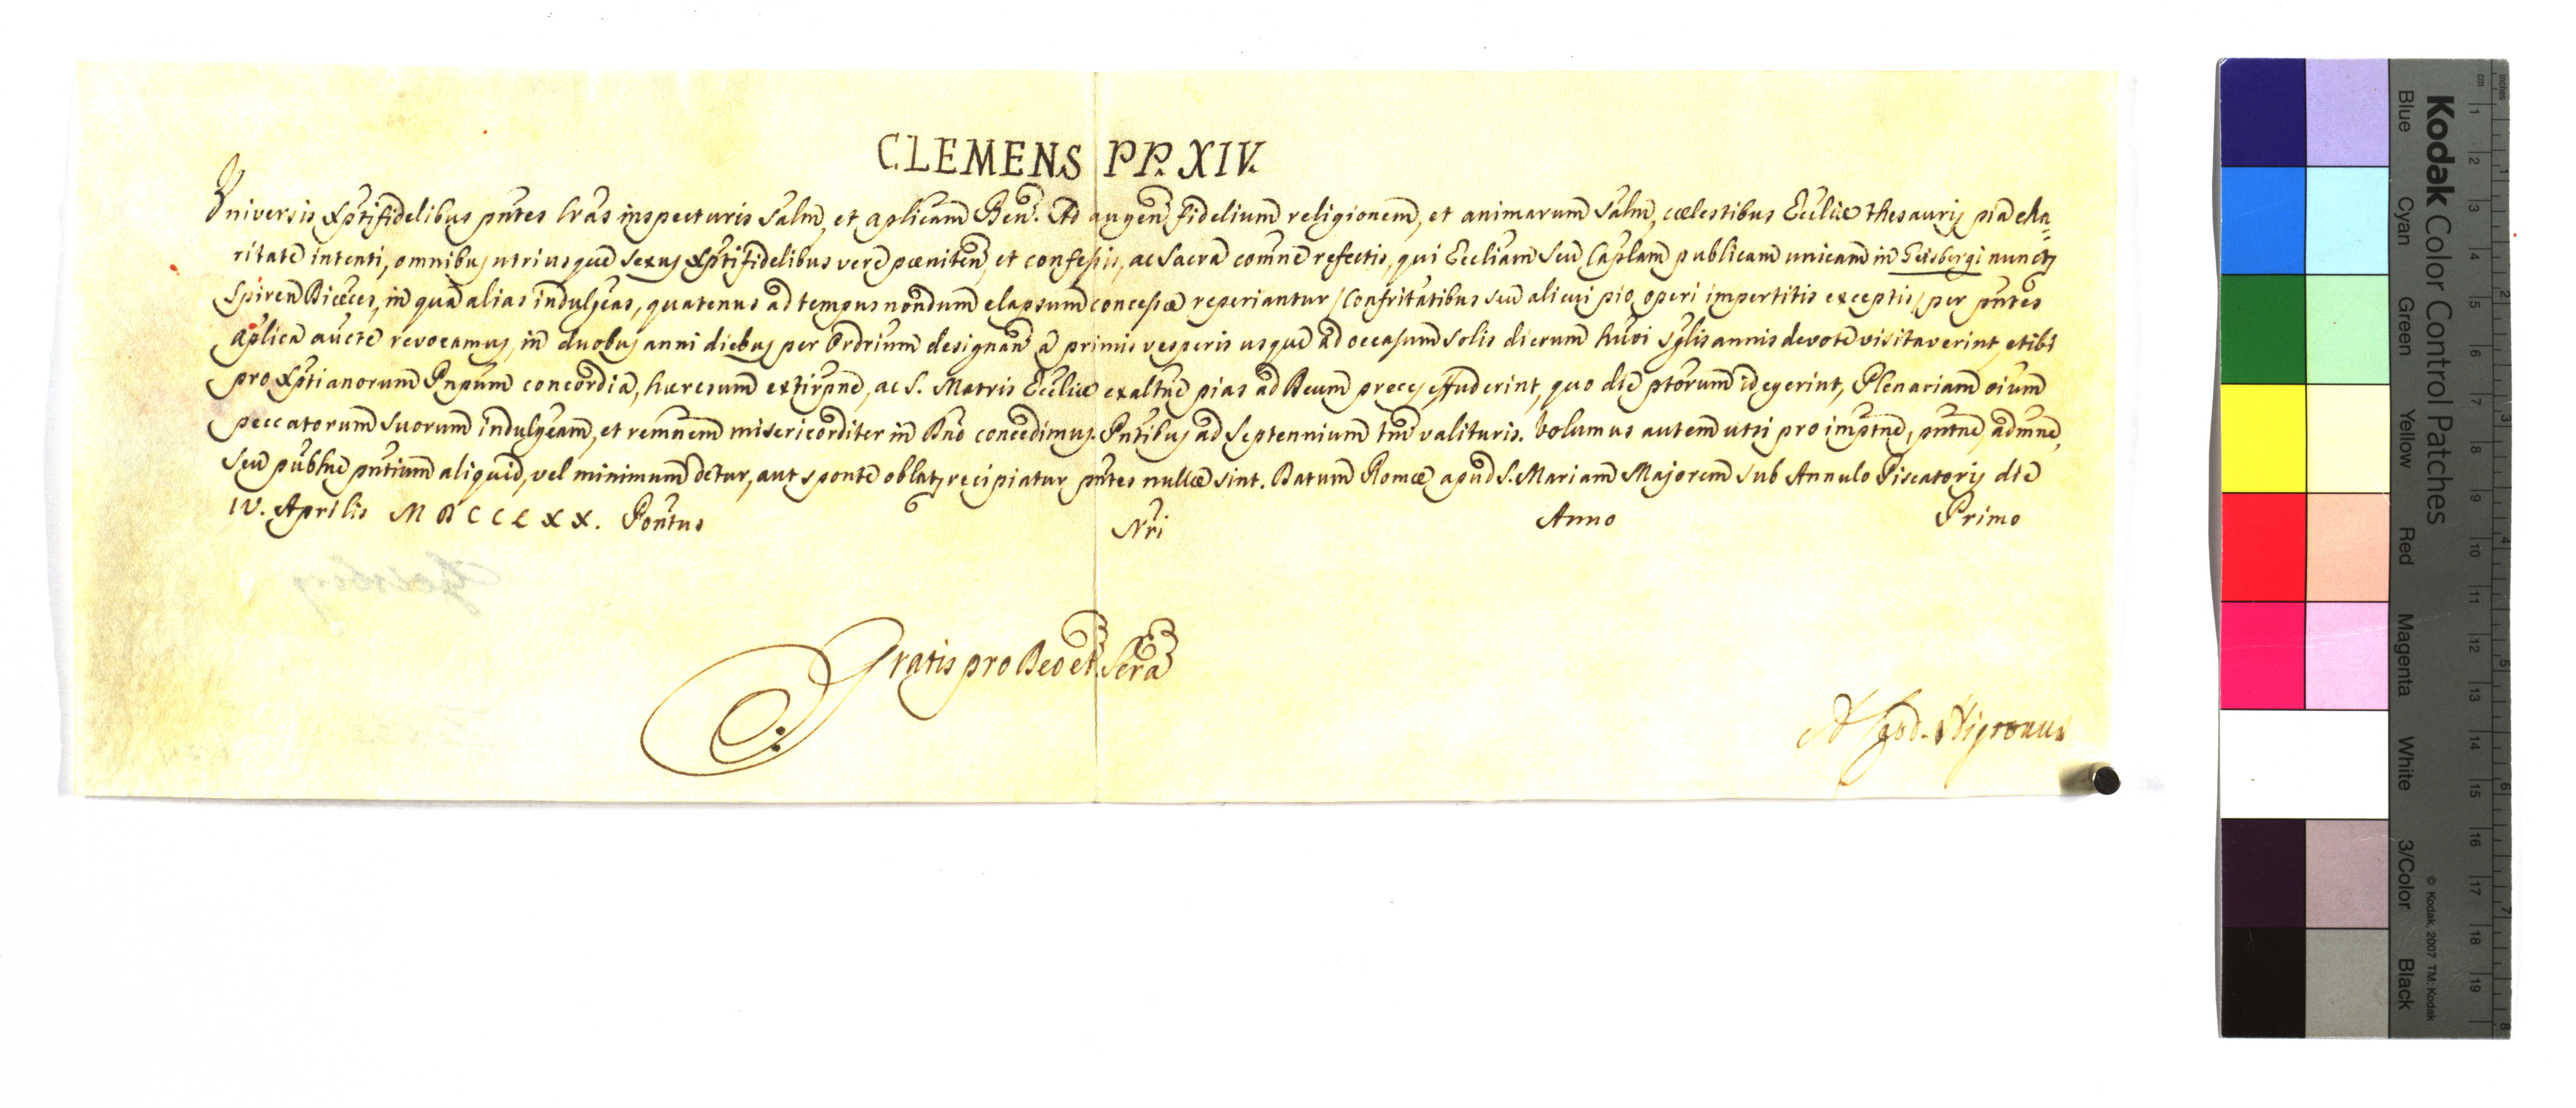 CLEMENS PP. XIV.
Universis Xpti fidelibus pntes lras inspecturis Salm, et aplicam Ben. Ad augen fidelium religionem, et animarum Salm, cœlestibus Ecclie thesauris pia cha=
ritate intenti, omnibus utriusque sexus Xpti fidelibus vere pœniten, et confessis, ac Sacra comne refectis, qui Eccliam seu Caplam publicam unicam in Geisbergi nuncup
Spiren Diœces, in qua alias indulgeas, quatenus ad tempus nondum elapsum concessæ reperiantur / Confritatibus seu alicui pio operi impertitis exceptis / per pntes
aplica aucte revocamus, in duobus anni diebus per Ordrium designan a primis vesperis usque ad occasum Solis dierum huoi sglis annis devote visitaverint, et ibi
pro Xptianorum Pnpum concordia, hæresum extirpne, ac S. Matris Ecclie exaltne pias ad Deum preces effuderint, quo die ptorum id egerint, Plenariam oium
peccatorum suorum indulgeam, et remnem misericorditer in Dno concedimus. Pntibus ad Septennium tm valituris. Volumus autem ut si pro imptne, pntne, admne,
seu publne pntium aliquid, vel minimum detur, aut sponte oblat recipiatur pntes nullæ sint. Datum Romæ apud S. Mariam Majorem sub Annulo Piscatoris die
IV. Aprilis MDCCLXX. Pontus Nri Anno Primo
Geisberg
Gratis pro Deo et Scra
A. Card. Nigronus
Kodak Color Control Patches
Blue Cyan Green Yellow Red Magenta White 3/Color Black
© Kodak, 2007 TM: Kodak
inches 1 2 3 4 5 6 7 8
cm 1 2 3 4 5 6 7 8 9 10 11 12 13 14 15 16 17 18 19